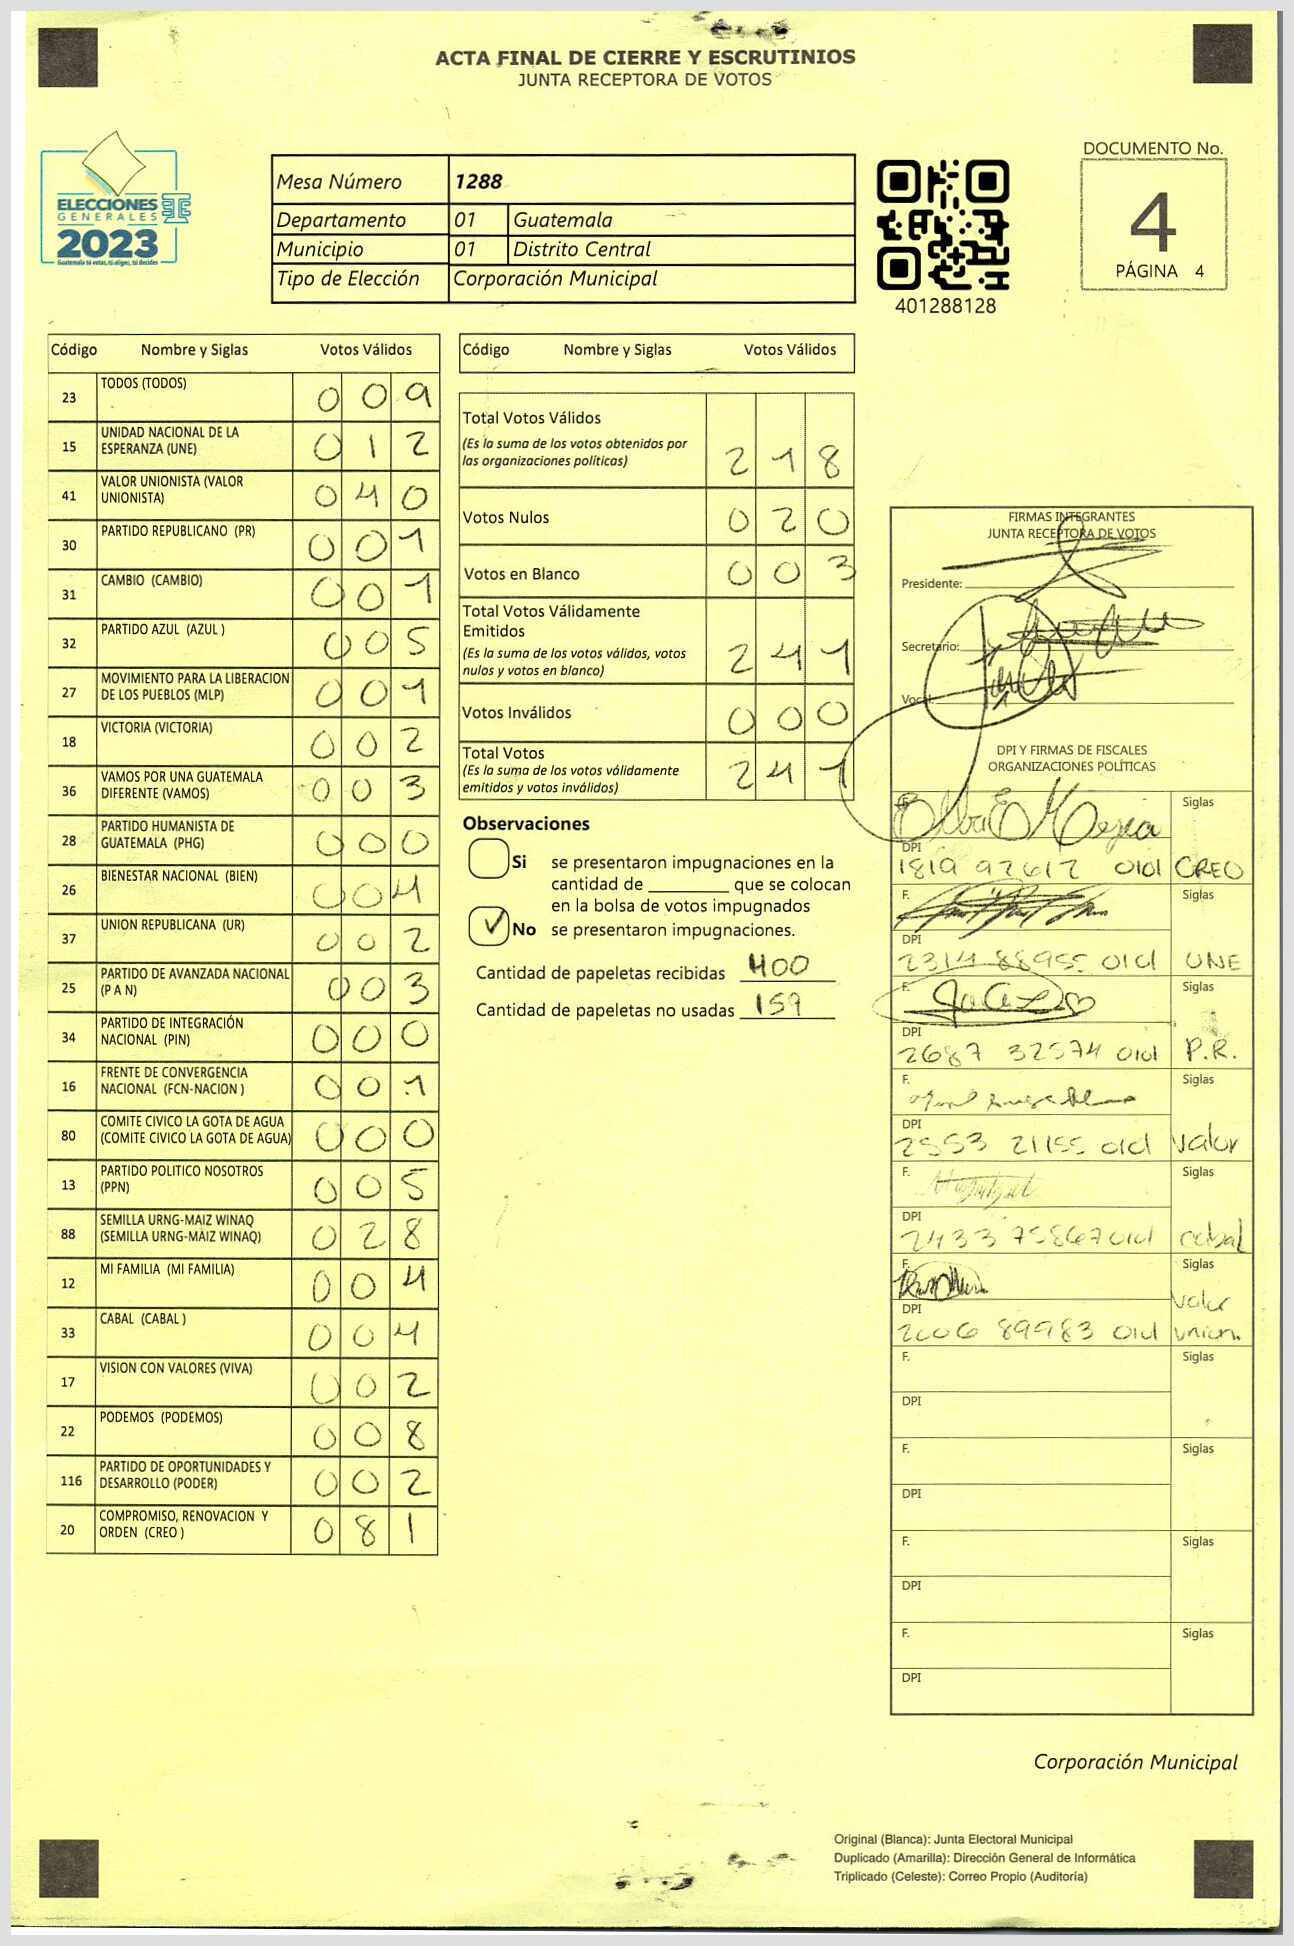 ACTA FINAL DE CIERRE Y ESCRUTINIOS
JUNTA RECEPTORA DE VOTOS
ELECCIONES
GENERALES
2023
Guatemala tú votas, tú eliges, tú decides
TSE
Mesa Número 1288
Departamento 01 Guatemala
Municipio 01 Distrito Central
Tipo de Elección Corporación Municipal
401288128
DOCUMENTO No.
4
PÁGINA 4
Código Nombre y Siglas Votos Válidos
23 TODOS (TODOS) 0 0 9
15 UNIDAD NACIONAL DE LA
ESPERANZA (UNE) 0 1 2
41 VALOR UNIONISTA (VALOR
UNIONISTA) 0 4 0
30 PARTIDO REPUBLICANO (PR) 0 0 1
31 CAMBIO (CAMBIO) 0 0 1
32 PARTIDO AZUL (AZUL ) 0 0 5
27 MOVIMIENTO PARA LA LIBERACION
DE LOS PUEBLOS (MLP) 0 0 1
18 VICTORIA (VICTORIA) 0 0 2
36 VAMOS POR UNA GUATEMALA
DIFERENTE (VAMOS) 0 0 3
28 PARTIDO HUMANISTA DE
GUATEMALA (PHG) 0 0 0
26 BIENESTAR NACIONAL (BIEN) 0 0 4
37 UNION REPUBLICANA (UR) 0 0 2
25 PARTIDO DE AVANZADA NACIONAL
(P A N) 0 0 3
34 PARTIDO DE INTEGRACIÓN
NACIONAL (PIN) 0 0 0
16 FRENTE DE CONVERGENCIA
NACIONAL (FCN-NACION ) 0 0 1
80 COMITE CIVICO LA GOTA DE AGUA
(COMITE CIVICO LA GOTA DE AGUA) 0 0 0
13 PARTIDO POLITICO NOSOTROS
(PPN) 0 0 5
88 SEMILLA URNG-MAIZ WINAQ
(SEMILLA URNG-MAIZ WINAQ) 0 2 8
12 MI FAMILIA (MI FAMILIA) 0 0 4
33 CABAL (CABAL ) 0 0 4
17 VISION CON VALORES (VIVA) 0 0 2
22 PODEMOS (PODEMOS) 0 0 8
116 PARTIDO DE OPORTUNIDADES Y
DESARROLLO (PODER) 0 0 2
20 COMPROMISO, RENOVACION Y
ORDEN (CREO ) 0 8 1
Código Nombre y Siglas Votos Válidos
Total Votos Válidos
(Es la suma de los votos obtenidos por
las organizaciones políticas) 2 1 8
Votos Nulos 0 2 0
Votos en Blanco 0 0 3
Total Votos Válidamente
Emitidos
(Es la suma de los votos válidos, votos
nulos y votos en blanco) 2 4 1
Votos Inválidos 0 0 0
Total Votos
(Es la suma de los votos válidamente
emitidos y votos inválidos) 2 4 1
Observaciones
Si se presentaron impugnaciones en la
cantidad de ________ que se colocan
en la bolsa de votos impugnados
✓ No se presentaron impugnaciones.
Cantidad de papeletas recibidas 400
Cantidad de papeletas no usadas 159
FIRMAS INTEGRANTES
JUNTA RECEPTORA DE VOTOS
Presidente:
Secretario:
Vocal:
DPI Y FIRMAS DE FISCALES
ORGANIZACIONES POLÍTICAS
F. Elba E Mejia Siglas
DPI
1819 92612 0101 CREO
F. Siglas
DPI
2314 88955 0101 UNE
F. Siglas
DPI
2687 32574 0101 P.R.
F. Siglas
DPI
2553 21155 0101 Valor
F. Siglas
DPI
2433 75867 0101 cabal
F. Siglas
valor
DPI
2006 89983 0101 union.
F. Siglas
DPI
F. Siglas
DPI
F. Siglas
DPI
F. Siglas
DPI
Corporación Municipal
Original (Blanca): Junta Electoral Municipal
Duplicado (Amarilla): Dirección General de Informática
Triplicado (Celeste): Correo Propio (Auditoría)